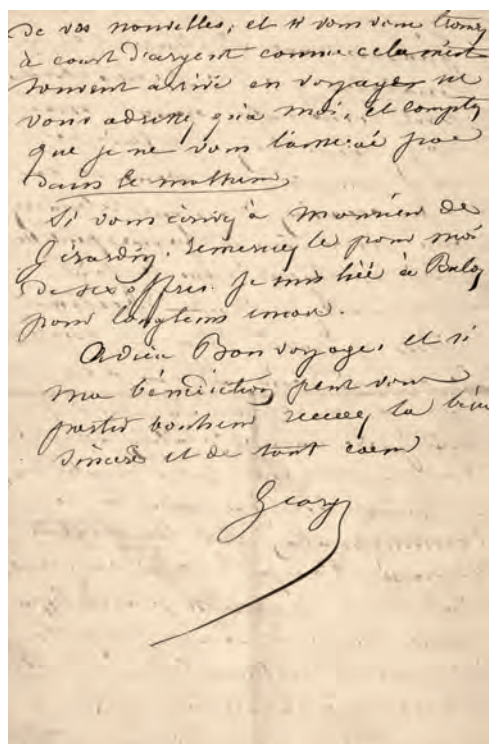 de vos nouvelles, et si vous vous trouvez
à court d'argent comme cela m'est
souvent arrivé en voyage, ne
vous adressez qu'à moi, et comptez
que je ne vous laisserai pas
dans le malheur.
Si vous écrivez à Monsieur de
Girardin, remerciez le pour moi
de ses offres. Je suis liée à Buloz
pour longtems encor.
Adieu Bon voyage, et si
ma bénédiction peut vous
porter bonheur recevez la bien
sincère et de tout coeur
George